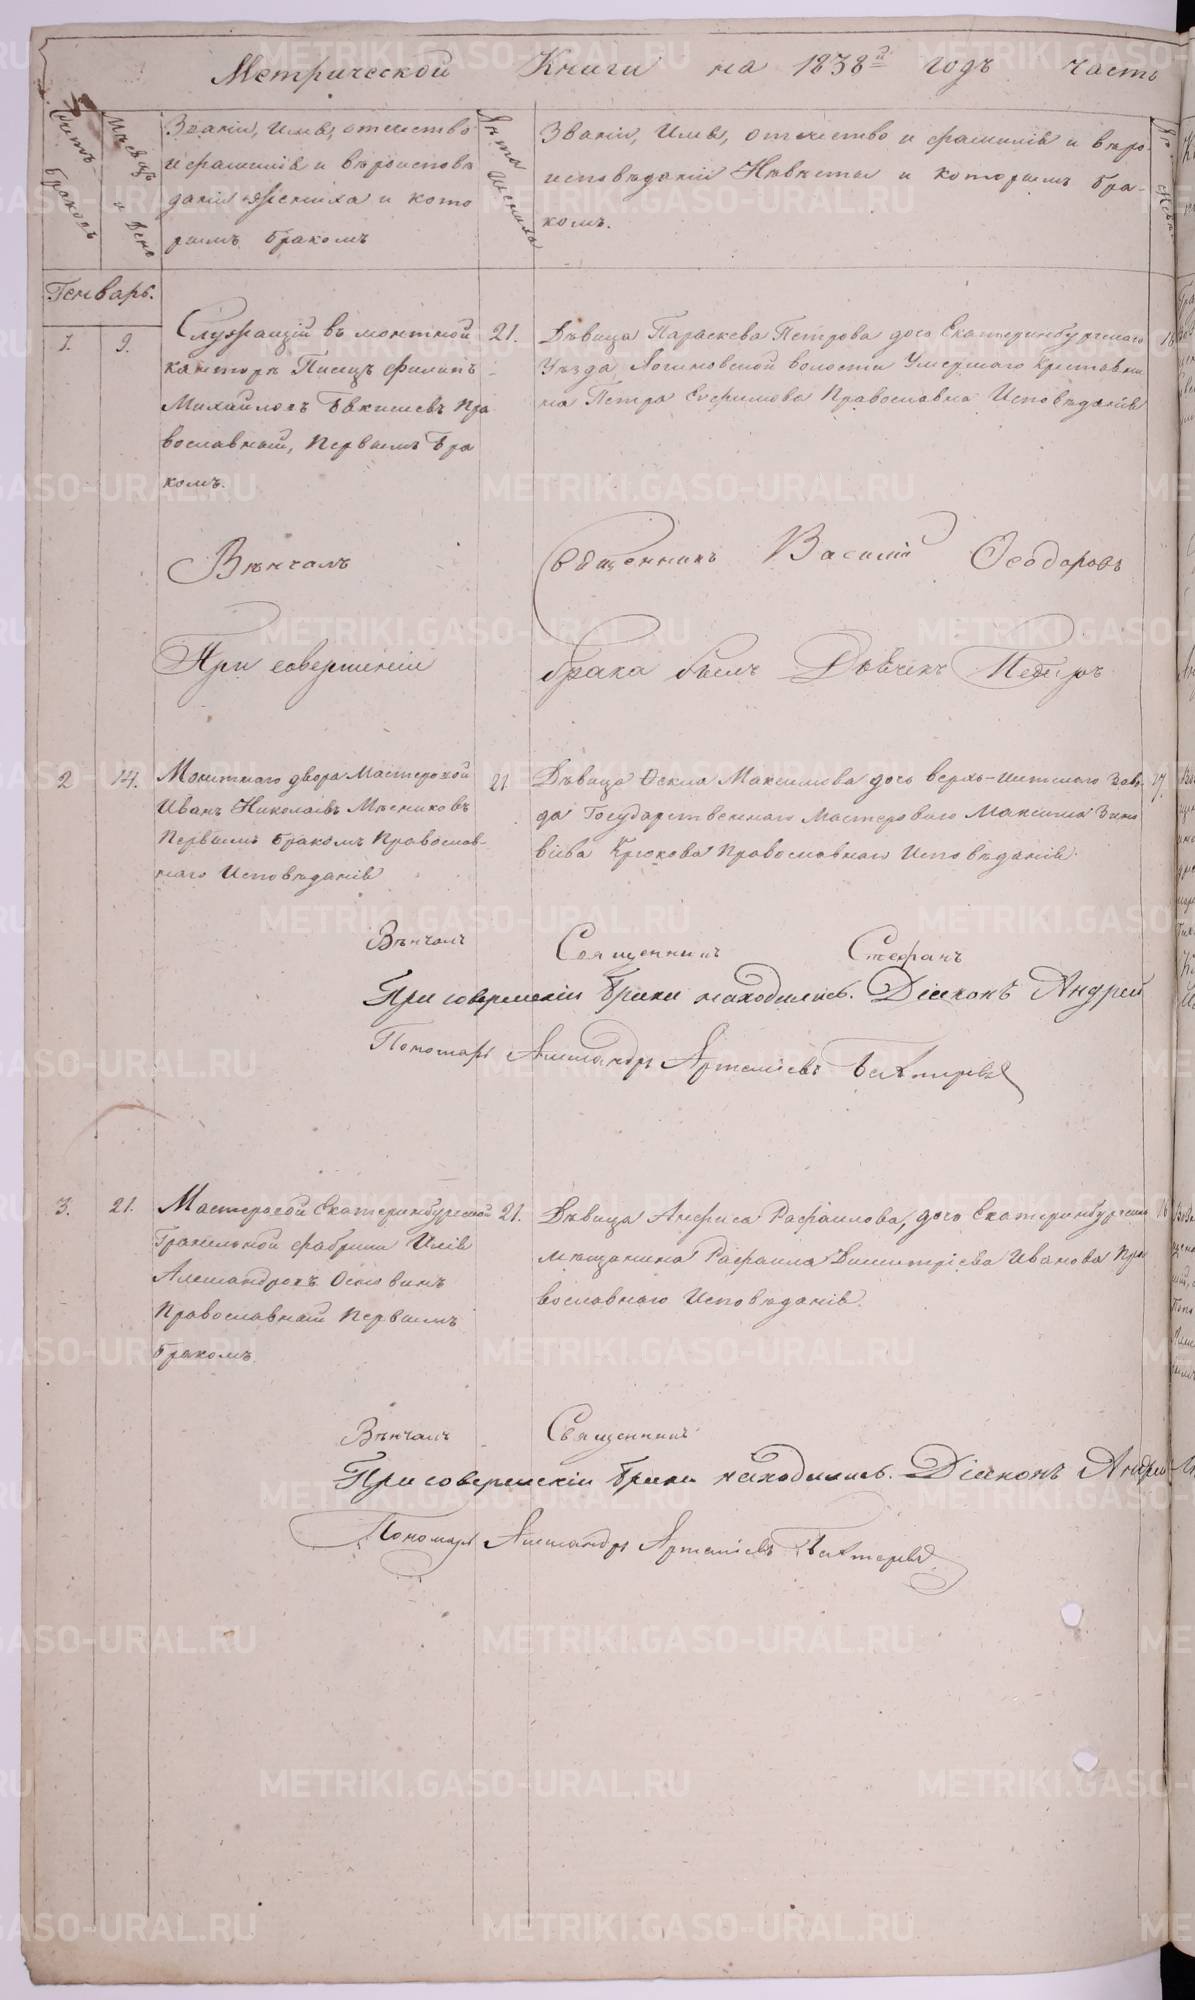 Метрической Книги на 1838й годъ часть
Счетъ браковъ
Мѣсяцъ и День
Званіи, Имя, отечество и фамилія и вѣроисповѣданіи Жениха и которымъ бракомъ
Лѣта Жениха
Званіи, Имя, отечество и фамилія и вѣроисповѣданіи Невѣсты и которымъ бракомъ.
Генварь.
1. 9.
Служащій въ монетной
канторѣ Писецъ Филипъ
Михайловъ
Православный, Первымъ Бракомъ.
21.
Дѣвица Параскева Петрова дочь Екатеринбургскаго
Уѣзда Логиновской волости Умершаго Крестьянина
Петра Ефимова Православна Исповѣданія
Вѣнчалъ Священникъ Василій Ѳеодоровъ
При совершеніи брака былъ Дьячекъ Петръ
2 14.
Монетнаго двора Мастеровой
Иванъ Николаевъ Мясниковъ
Первымъ бракомъ Православ-
наго Исповѣданія
21
Дѣвица Ѳекла Максимова дочь верхъ-исетскаго Заво-
да Государственнаго Мастероваго Максима Зино
віева Крюкова Православнаго Исповѣданія.
Вѣнчалъ Священникъ Стефанъ
При совершеніи Брака находились. Діаконъ Андрей
Пономарь Александръ Артеміевъ Бахтеревъ
3. 21.
Мастеровой Екатеринбургской
Гранильной фабрики Илія
Александровъ Осковинъ
Православный Первымъ
Бракомъ.
21.
Дѣвица Анфиса Рафаилова, дочь Екатеринбургскаго
мѣщанина Рафаила Димитріева Иванова Пра
вославнаго Исповѣданія.
Вѣнчалъ Священникъ
При совершеніи Брака находились. Діаконъ Андрей
Пономарь Александръ Артеміевъ Бахтеревъ
METRIKI.GASO-URAL.RU